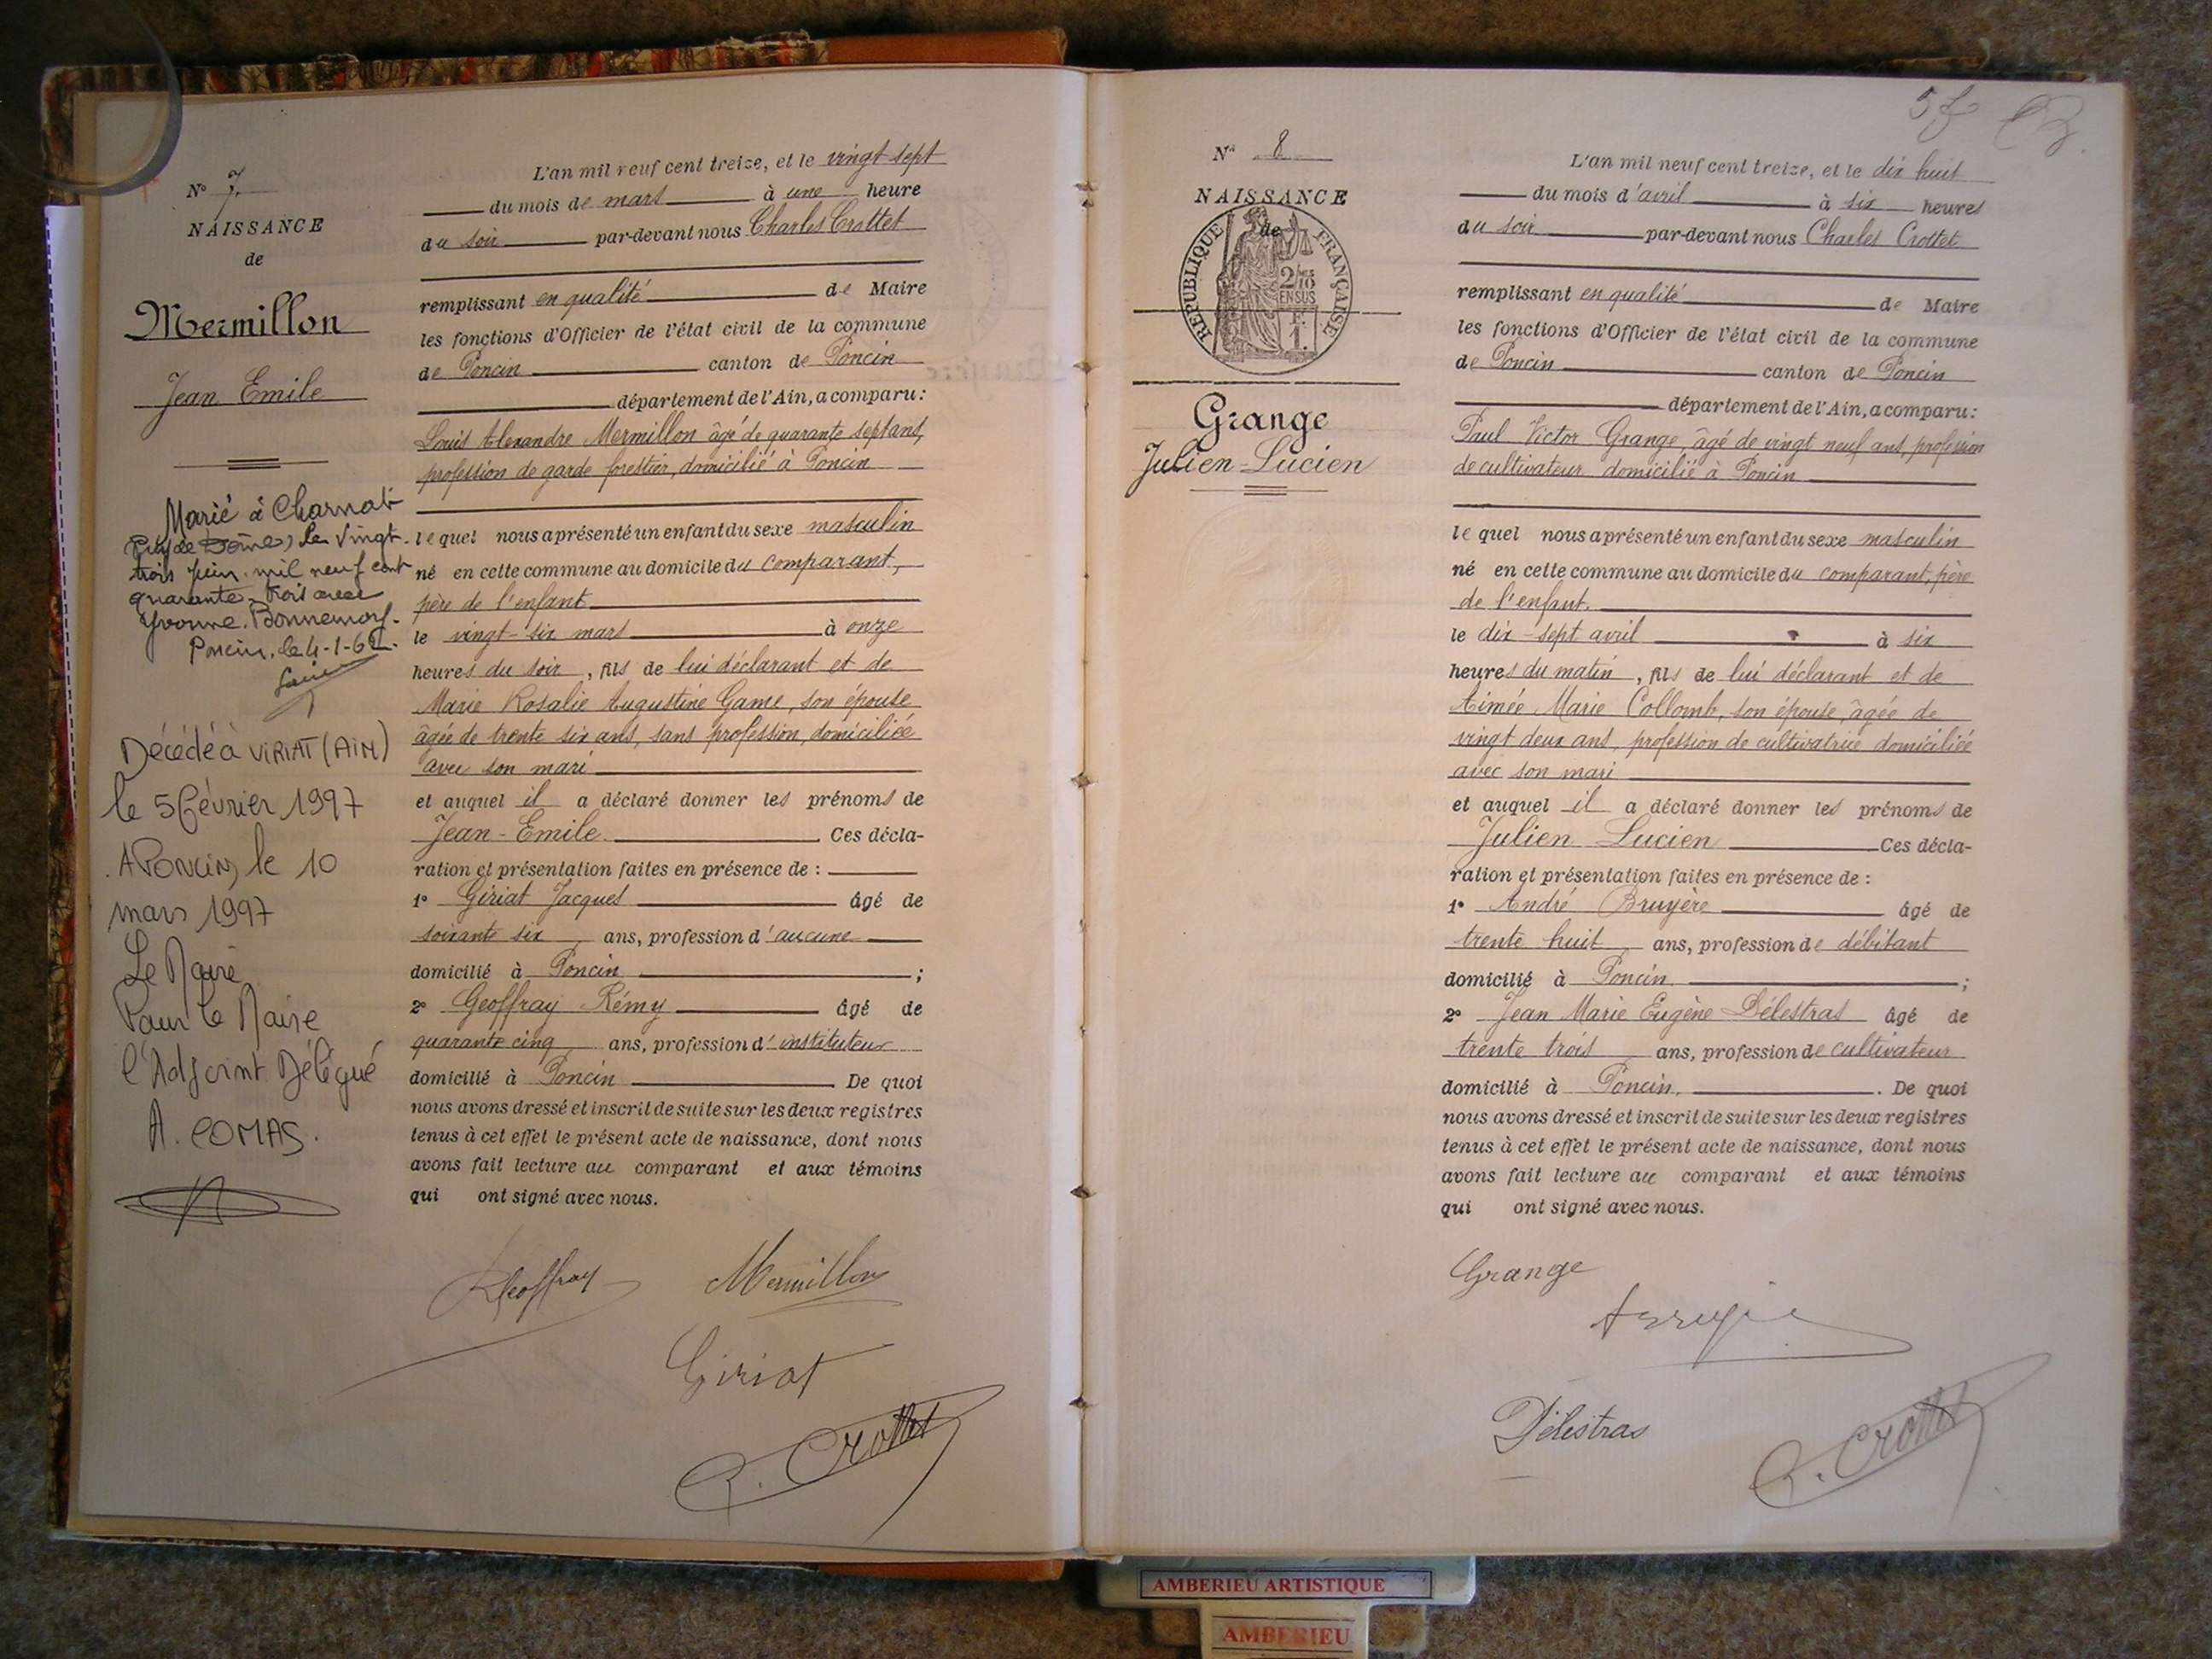 N° 7.
NAISSANCE
de
Mermillon
Jean Emile
Marié à Charnat
(Puy de Dôme) le vingt-
trois juin mil neuf cent
quarante-trois avec
Yvonne
Poncin, le 4-1-
Décédé à VIRIAT (AIN)
le 5 février 1997
A PONCIN, le 10
mars 1997
Le Maire
Pour le Maire
l'Adjoint Délégué
A. COMAS.
L'an mil neuf cent treize, et le vingt sept
du mois de mars à une heure
du soir par-devant nous Charles Crottet
remplissant en qualité de Maire
les fonctions d'Officier de l'état civil de la commune
de Poncin canton de Poncin
département de l'Ain, a comparu:
Louis Alexandre Mermillon âgé de quarante sept ans,
profession de garde forestier, domicilié à Poncin
lequel nous a présenté un enfant du sexe masculin
né en cette commune au domicile du comparant,
père de l'enfant
le vingt-six mars à onze
heures du soir, fils de lui déclarant et de
Marie Rosalie Augustine Game, son épouse
âgée de trente six ans, sans profession, domiciliée
avec son mari
et auquel il a déclaré donner les prénoms de
Jean-Emile. Ces décla-
ration et présentation faites en présence de :
1° Giriat Jacques âgé de
soixante six ans, profession d'aucune
domicilié à Poncin ;
2° Geoffray Rémy âgé de
quarante cinq ans, profession d'instituteur
domicilié à Poncin. De quoi
nous avons dressé et inscrit de suite sur les deux registres
tenus à cet effet le présent acte de naissance, dont nous
avons fait lecture au comparant et aux témoins
qui ont signé avec nous.
RGeoffray Mermillon
Giriat
C. Crottet
N° 8
NAISSANCE
de
REPUBLIQUE FRANÇAISE
2/10
EN SUS
1F.
Grange
Julien-Lucien
L'an mil neuf cent treize, et le dix huit
du mois d'avril à six heures
du soir par-devant nous Charles Crottet
remplissant en qualité de Maire
les fonctions d'Officier de l'état civil de la commune
de Poncin canton de Poncin
département de l'Ain, a comparu:
Paul Victor Grange, âgé de vingt neuf ans, profession
de cultivateur domicilié à Poncin
lequel nous a présenté un enfant du sexe masculin
né en cette commune au domicile du comparant, père
de l'enfant.
le dix-sept avril à six
heures du matin, fils de lui déclarant et de
Aimée Marie Collomb, son épouse, âgée de
vingt deux ans, profession de cultivatrice domiciliée
avec son mari
et auquel il a déclaré donner les prénoms de
Julien Lucien Ces décla-
ration et présentation faites en présence de :
1° André Bruyère âgé de
trente huit ans, profession de débitant
domicilié à Poncin ;
2° Jean Marie Eugène Délestras âgé de
trente trois ans, profession de cultivateur
domicilié à Poncin. De quoi
nous avons dressé et inscrit de suite sur les deux registres
tenus à cet effet le présent acte de naissance, dont nous
avons fait lecture au comparant et aux témoins
qui ont signé avec nous.
Grange
Délestras
C. Crottet
AMBERIEU ARTISTIQUE
AMBERIEU